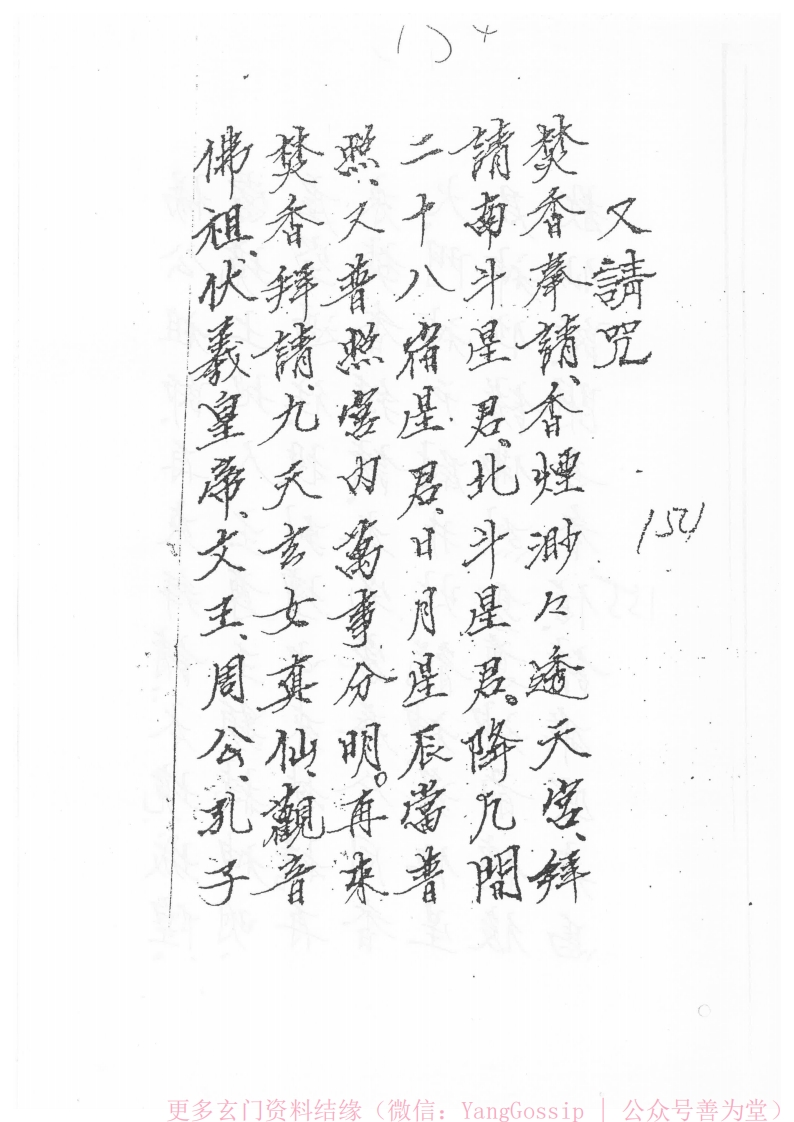 又請咒
焚香拳請、香煙渺々透天宮、拜
請南斗星君、北斗星君。降凢間
二十八宿星君、日月星辰當普
照、又普照宮内萬事分明。再來
焚香拜請、九天玄女真仙、觀音
佛祖、伏羲皇帝、文王、周公、孔子
154
更多玄门资料结缘（微信：YangGossip | 公众号善为堂）